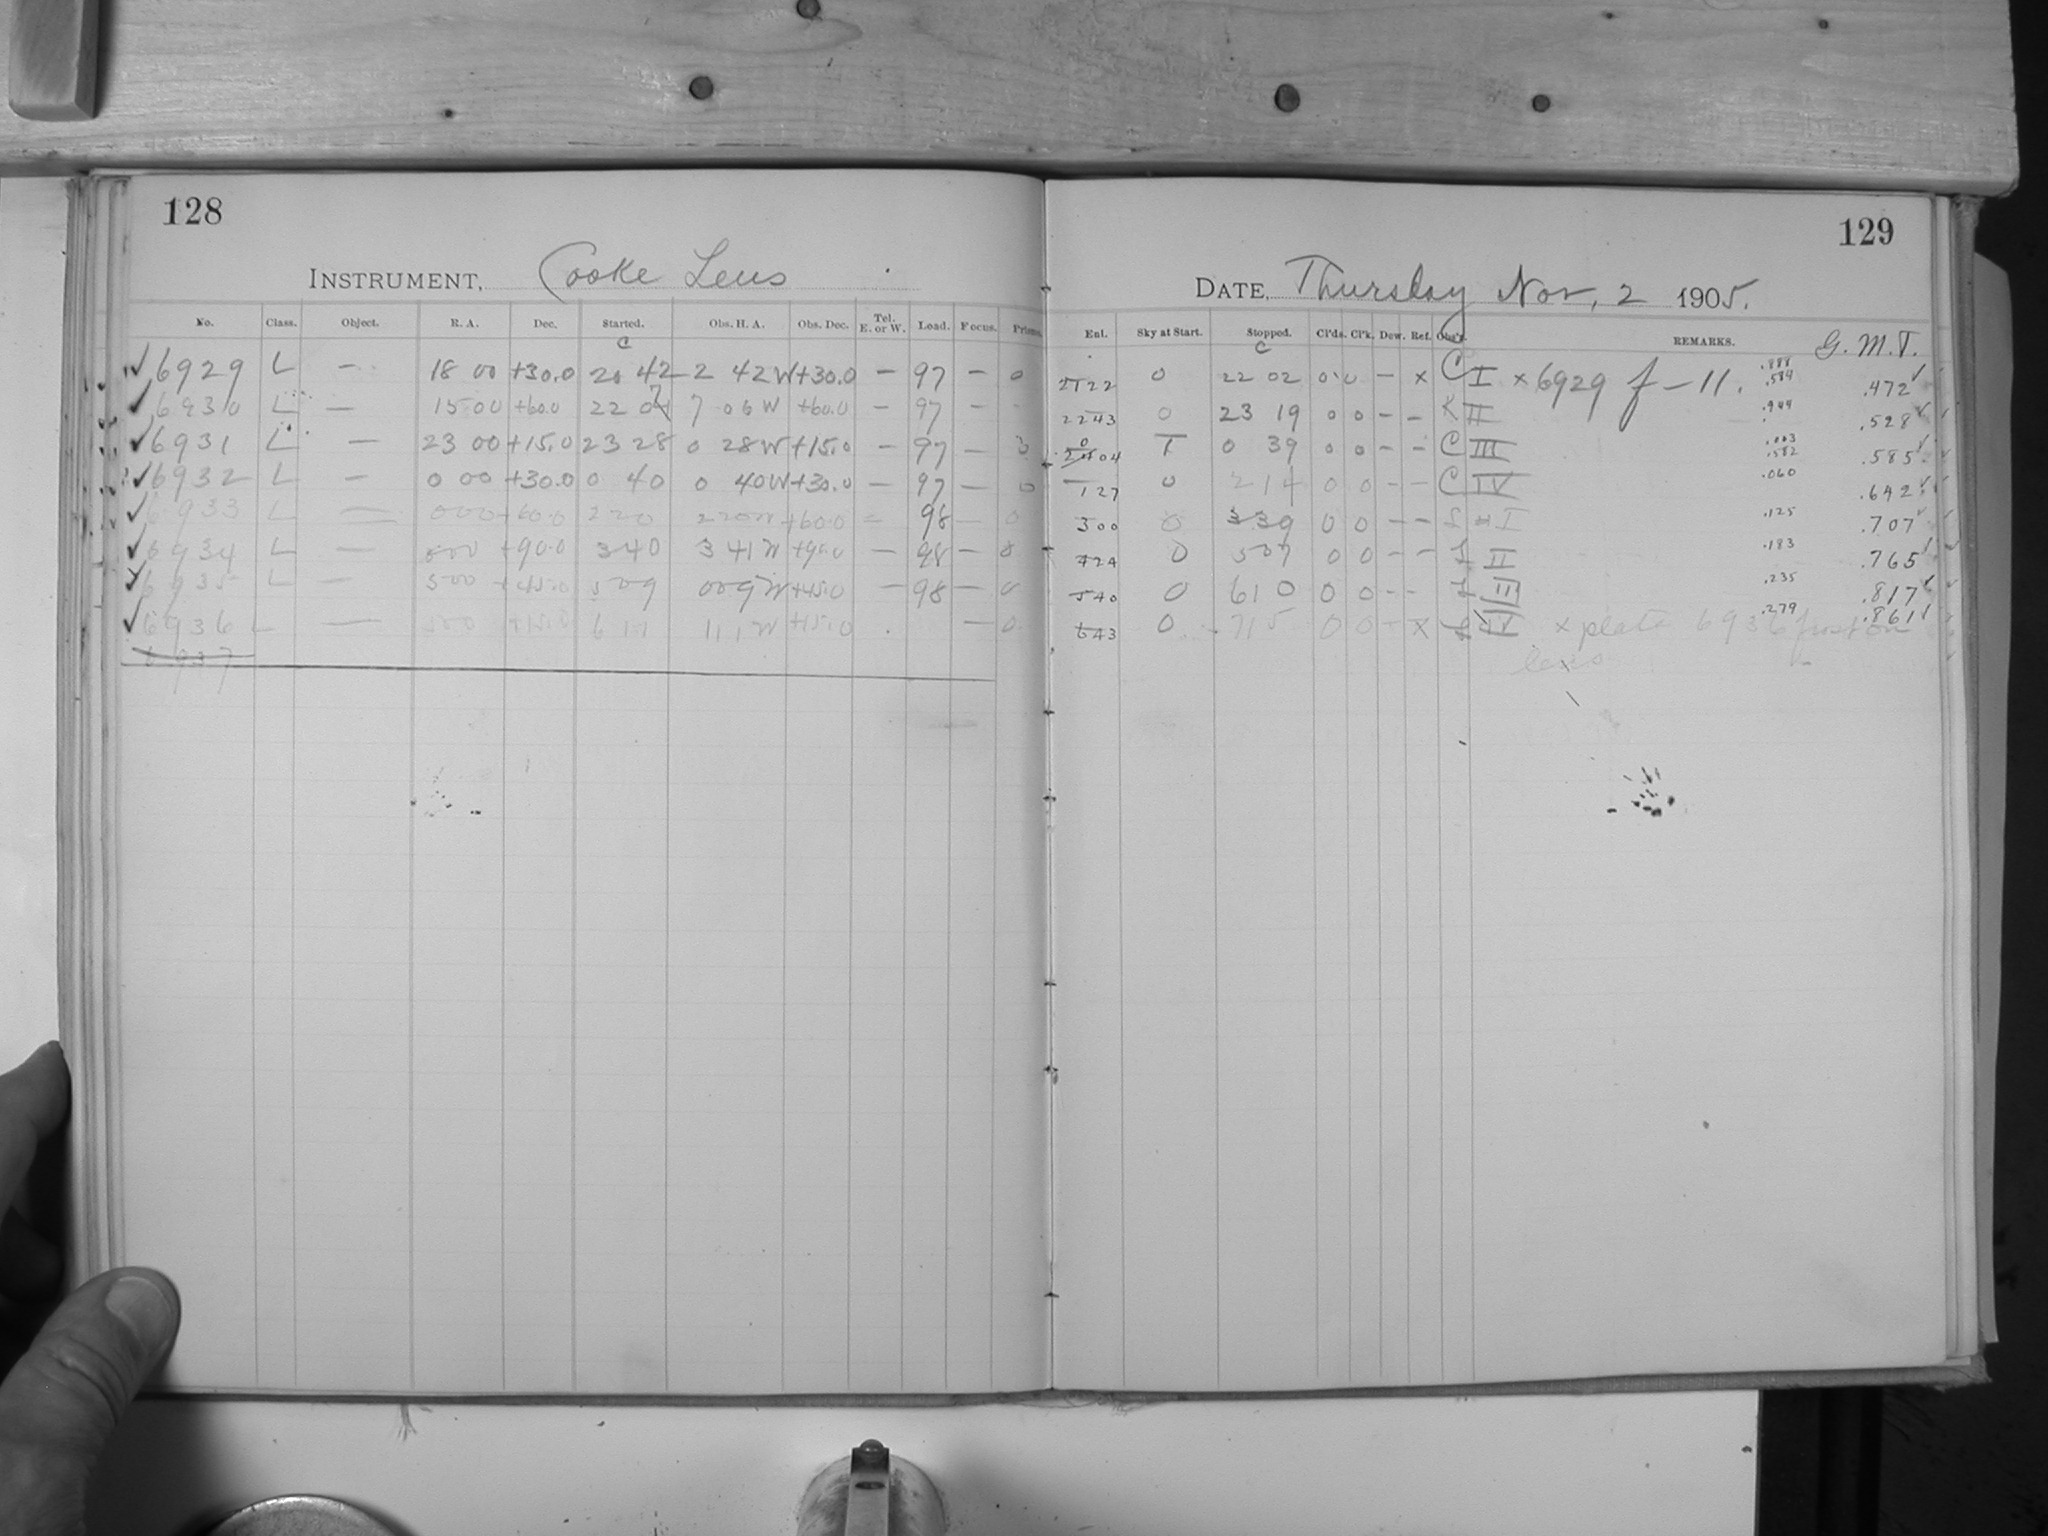 128
INSTRUMENT, Cooke Lens
No. Class. Object. R. A. Dec. Started. Obs. H. A. Obs. Dec. Tel. E. or W. Load. Focus. Prisms.
C
6929 L — 18 00 +30.0 20 42 2 42 W +30.0 — 97 — 0
6930 L — 15 00 +60.0 22 07 7 06 W +60.0 — 97 -
6931 L — 23 00 +15.0 23 28 0 28 W +15.0 — 97 —
6932 L — 0 00 +30.0 0 40 0 40 W +30.0 — 97 — 0
6933 L — 0 00 +60.0 2 20 2 20 W +60.0 — 98 — 0
6934 L — +90.0 3 40 3 41 W +90.0 — 98 — 0
6935 L — 5 00 +45.0 5 09 0 09 W +45.0 — 98 — 0
6936 L — 5 00 +15.0 6 11 1 11 W +15.0 — 0
6937
129
DATE, Thursday Nov. 2 1905.
Ent. Sky at Start. Stopped. Cl'ds. Cl'k. Dew. Ref. Obs'r. REMARKS. G. M. T.
C
2122 0 22 02 0 0 — x C I x 6929 f — 11. .888 .584 .472
2243 0 23 19 0 0 - - K II .944 .528
04 T 0 39 0 0 - - C III .003 .582 .585
127 0 2 14 0 0 - - C IV .060 .642
300 0 3 39 0 0 - - I .125 .707
424 0 5 07 0 0 - - II .183 .765
540 0 6 10 0 0 - - III .235 .817
643 0 7 15 0 0 - x IV x plate 6936 frost on .279 .861
lens